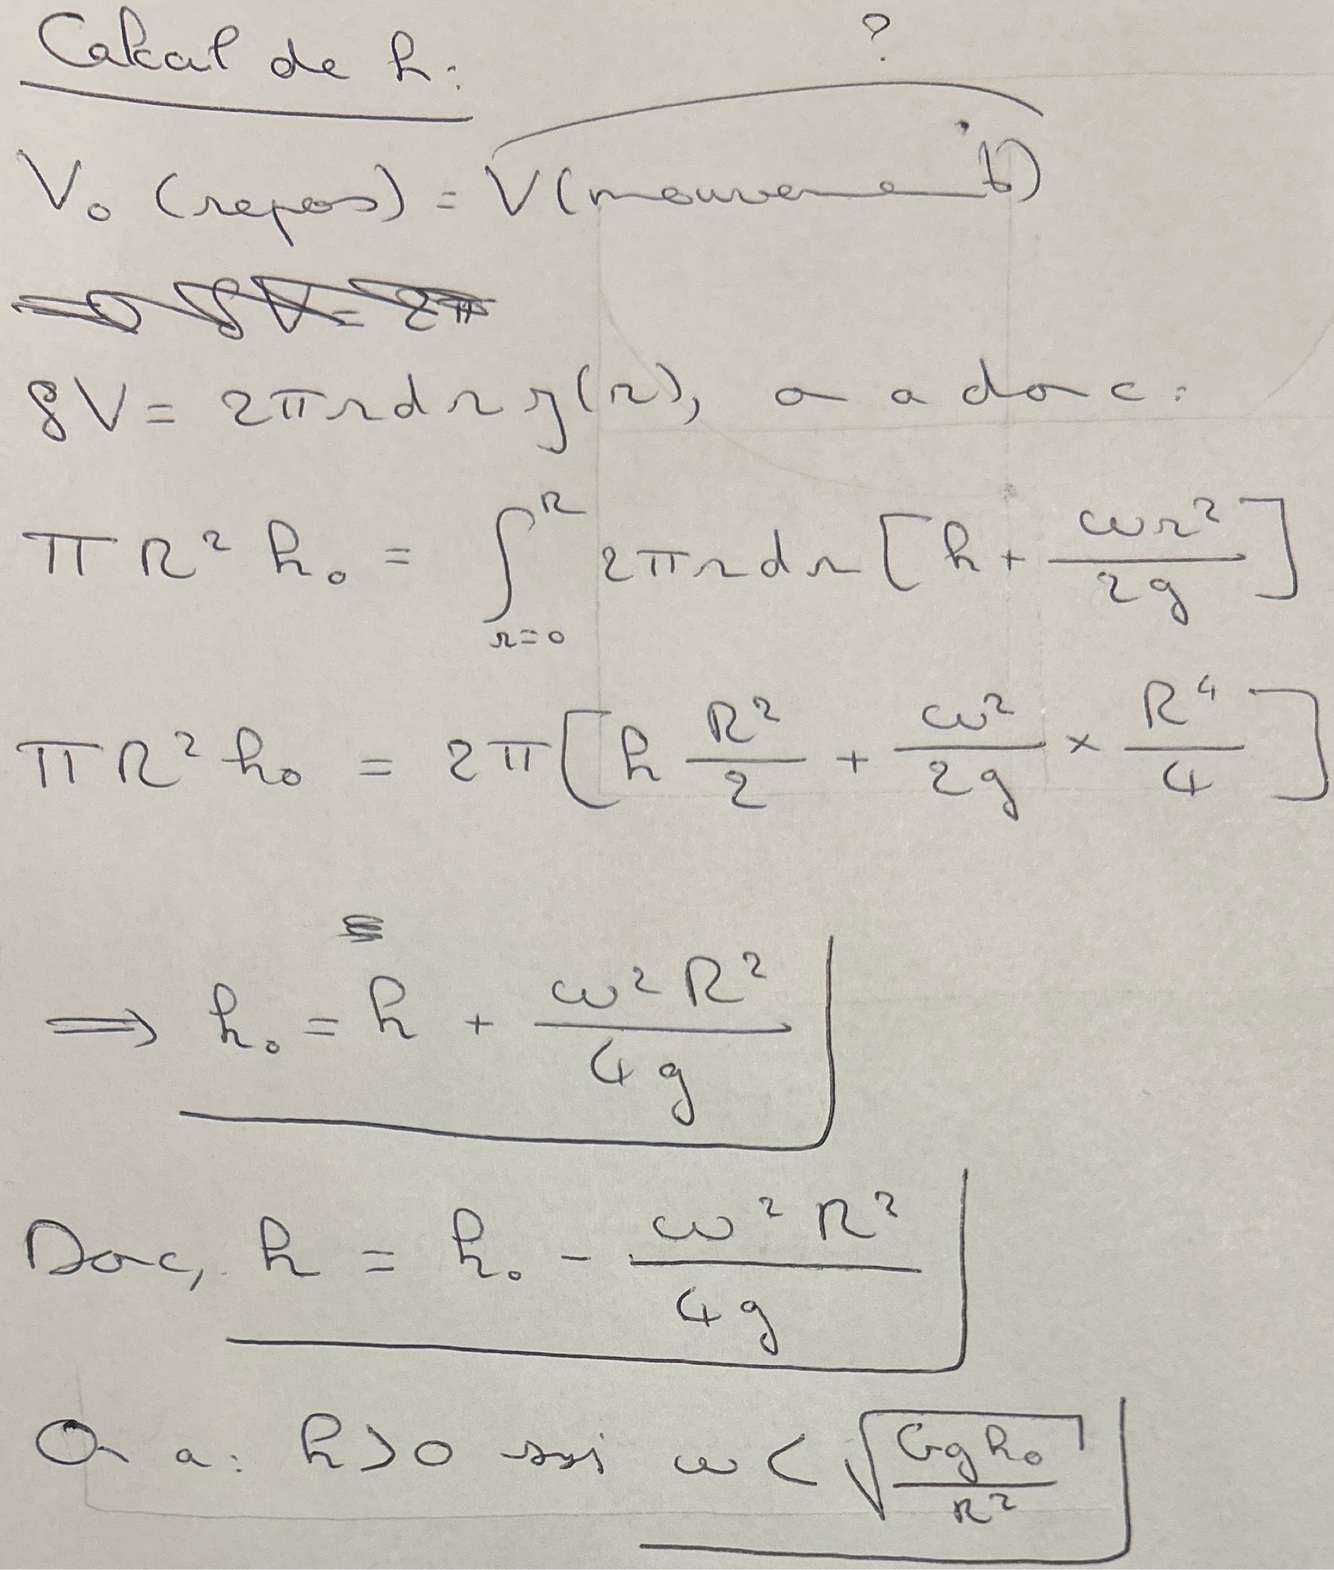 Calcul de h:
?
V₀ (repos) = V(mouvement)
δV = 2πrdr z(r), on a donc:
πR²h₀ = ∫_{r=0}^{R} 2πrdr [h + ωr²/2g]
πR²h₀ = 2π[h R²/2 + ω²/2g × R⁴/4]
⟹ h₀ = h + ω²R²/4g
Donc, h = h₀ - ω²R²/4g
On a: h>0 ssi ω < √(4gh₀/R²)